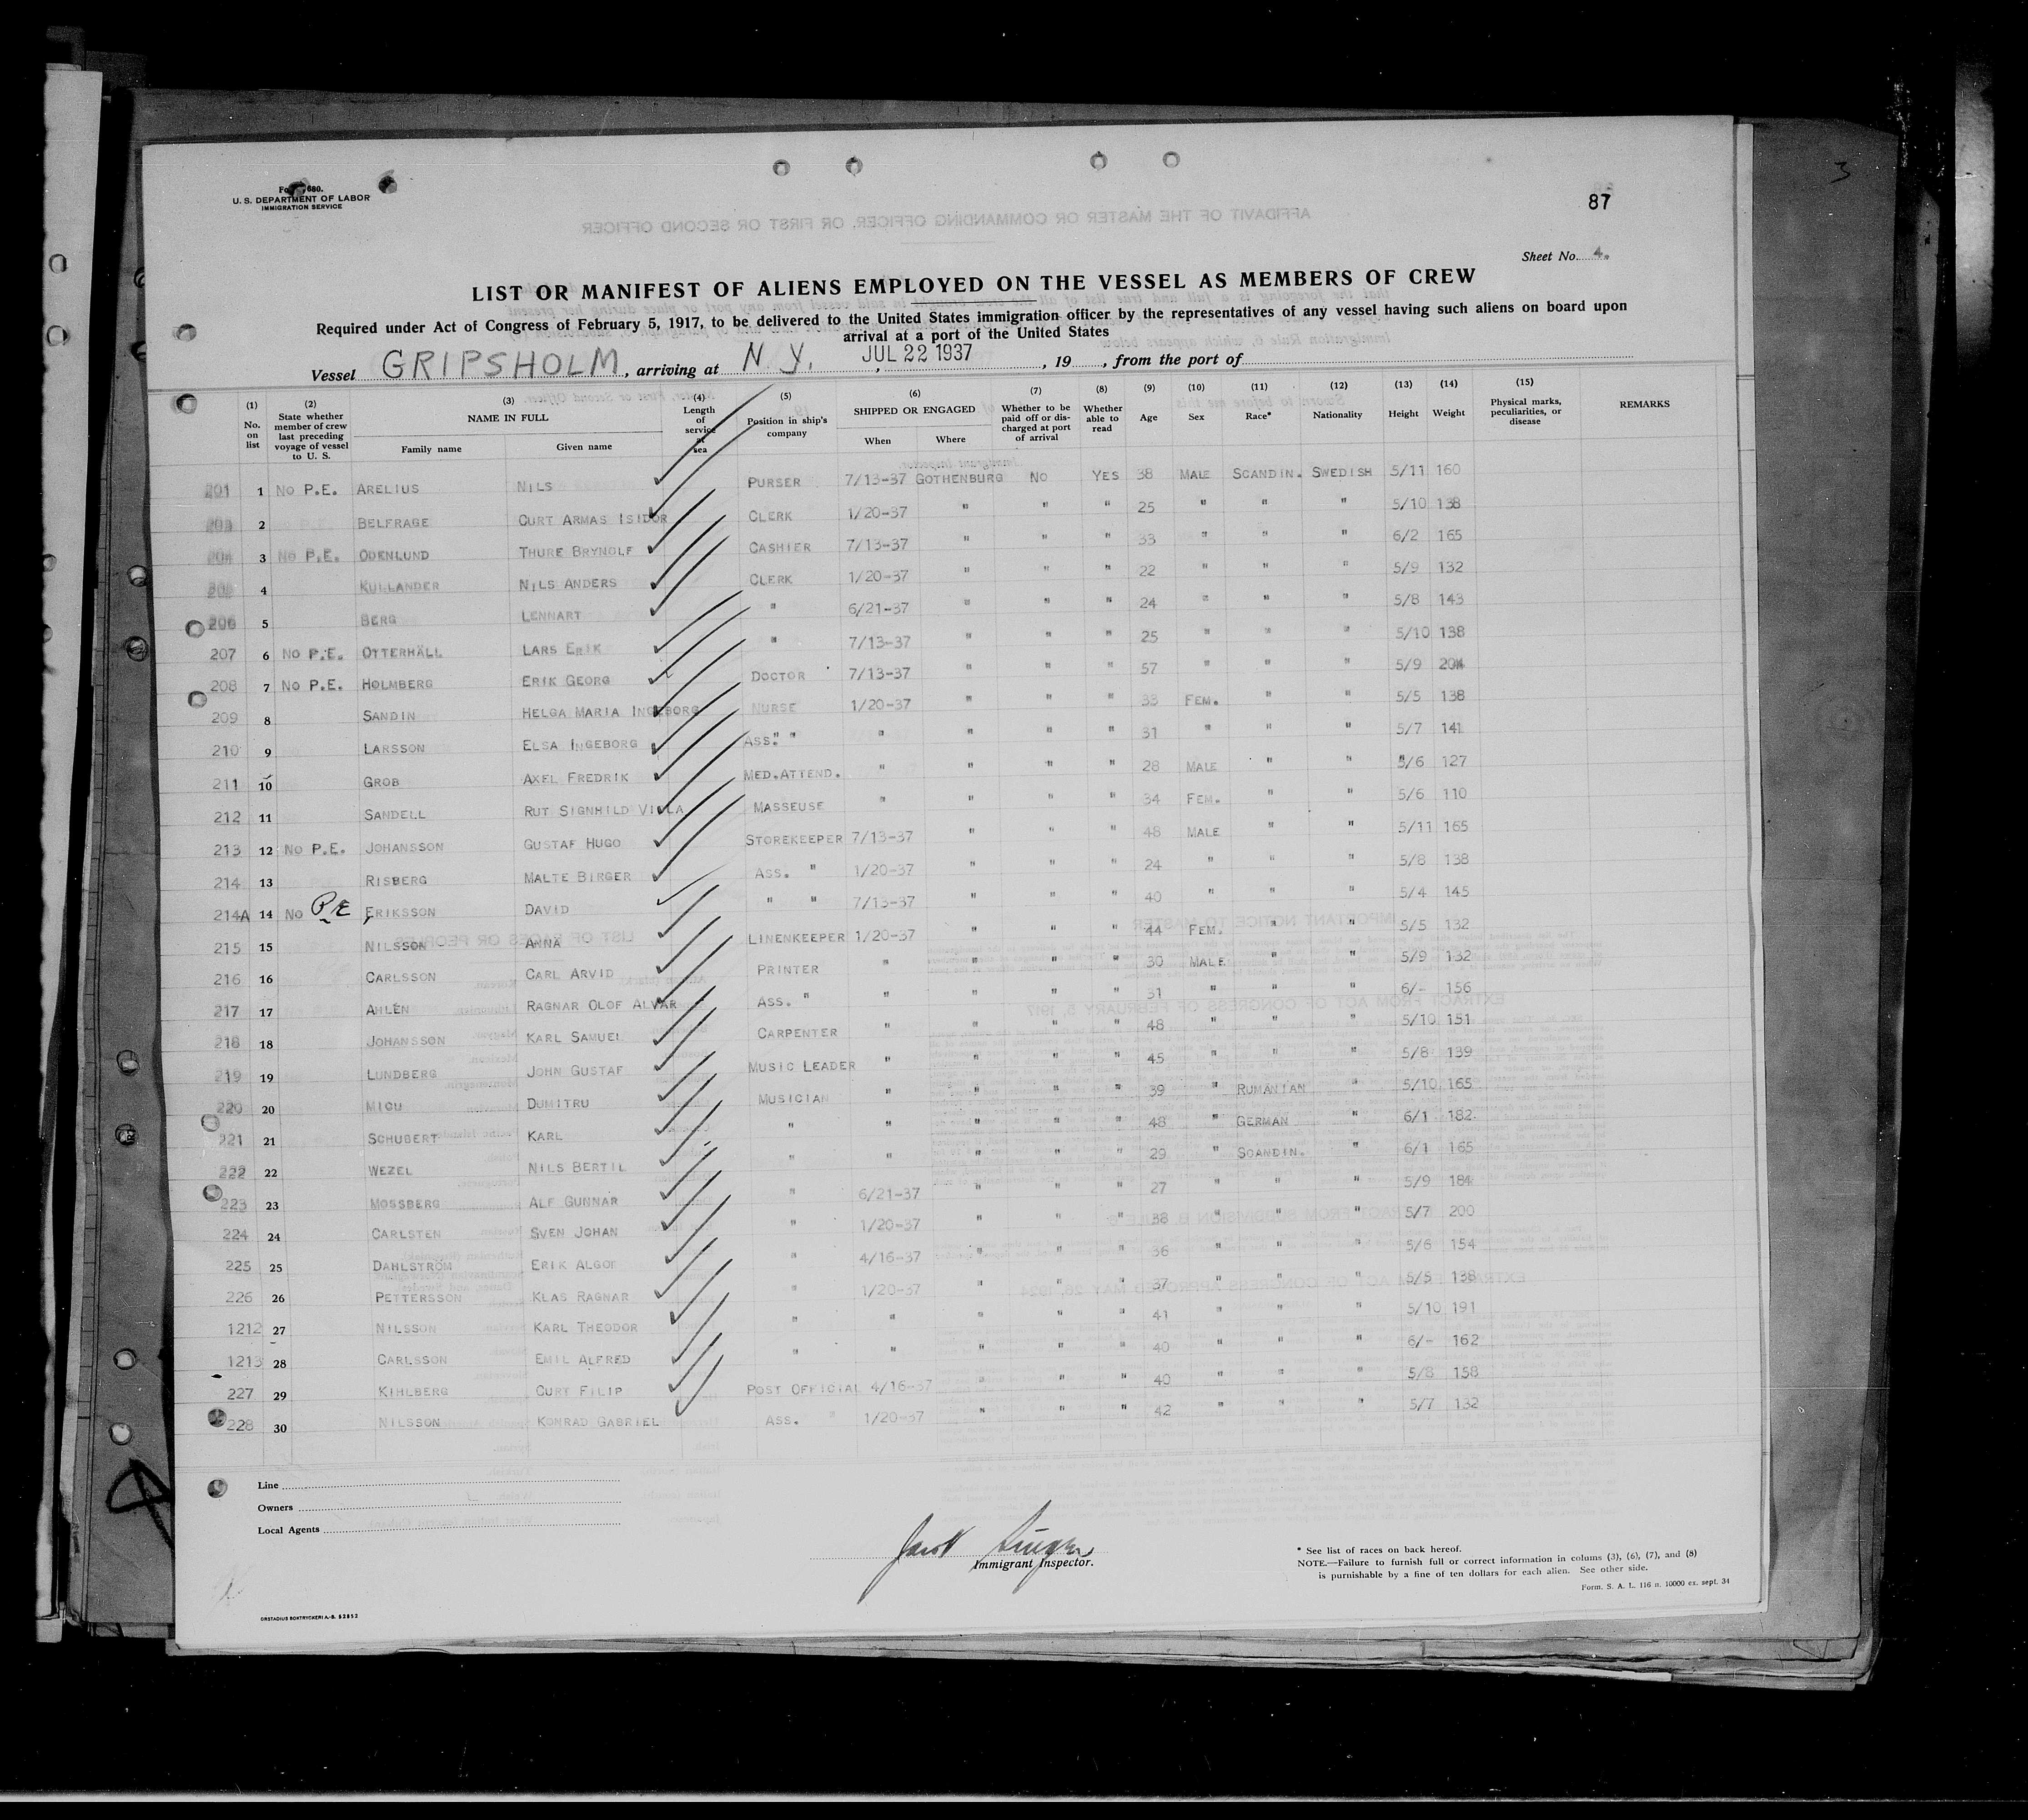 3
Form 680.
U. S. DEPARTMENT OF LABOR
IMMIGRATION SERVICE
87
AFFIDAVIT OF THE MASTER OR COMMANDING OFFICER, OR FIRST OR SECOND OFFICER
Sheet No. 4.
LIST OR MANIFEST OF ALIENS EMPLOYED ON THE VESSEL AS MEMBERS OF CREW
Required under Act of Congress of February 5, 1917, to be delivered to the United States immigration officer by the representatives of any vessel having such aliens on board upon
arrival at a port of the United States
Vessel GRIPSHOLM, arriving at N. Y., JUL 22 1937, 19, from the port of
(1) No. on list (2) State whether member of crew last preceding voyage of vessel to U. S. (3) NAME IN FULL Family name Given name (4) Length of service at sea (5) Position in ship's company (6) SHIPPED OR ENGAGED When Where (7) Whether to be paid off or discharged at port of arrival (8) Whether able to read (9) Age (10) Sex (11) Race* (12) Nationality (13) Height (14) Weight (15) Physical marks, peculiarities, or disease REMARKS
201 1 NO P.E. ARELIUS NILS PURSER 7/13-37 GOTHENBURG NO YES 38 MALE SCANDIN. SWEDISH 5/11 160
203 2 BELFRAGE CURT ARMAS ISIDOR CLERK 1/20-37 " " " 25 " " " 5/10 138
204 3 NO P.E. ODENLUND THURE BRYNOLF CASHIER 7/13-37 " " " 33 " " " 6/2 165
4 KULLANDER NILS ANDERS CLERK 1/20-37 " " " 22 " " " 5/9 132
206 5 BERG LENNART " 6/21-37 " " " 24 " " " 5/8 143
207 6 NO P.E. OTTERHÄLL LARS ERIK " 7/13-37 " " " 25 " " " 5/10 138
208 7 NO P.E. HOLMBERG ERIK GEORG DOCTOR 7/13-37 " " " 57 " " " 5/9 204
209 8 SANDIN HELGA MARIA INGEBORG NURSE 1/20-37 " " " 33 FEM. " " 5/5 138
210 9 LARSSON ELSA INGEBORG ASS. " " " " " 31 " " " 5/7 141
211 10 GROB AXEL FREDRIK MED.ATTEND. " " " " 28 MALE " " 5/6 127
212 11 SANDELL RUT SIGNHILD VIOLA MASSEUSE " " " " 34 FEM. " " 5/6 110
213 12 NO P.E. JOHANSSON GUSTAF HUGO STOREKEEPER 7/13-37 " " " 48 MALE " " 5/11 165
214 13 RISBERG MALTE BIRGER ASS. " 1/20-37 " " " 24 " " " 5/8 138
214A 14 NO P.E ERIKSSON DAVID " " 7/13-37 " " " 40 " " " 5/4 145
215 15 NILSSON ANNA LINENKEEPER 1/20-37 " " " 44 FEM. " " 5/5 132
216 16 CARLSSON CARL ARVID PRINTER " " " " 30 MALE " " 5/9 132
217 17 AHLÉN RAGNAR OLOF ALVAR ASS. " " " " " 31 " " " 6/- 156
218 18 JOHANSSON KARL SAMUEL CARPENTER " " " " 48 " " " 5/10 151
219 19 LUNDBERG JOHN GUSTAF MUSIC LEADER " " " " 45 " " " 5/8 139
220 20 MICU DUMITRU MUSICIAN " " " " 39 " RUMANIAN " 5/10 165
221 21 SCHUBERT KARL " " " " " 48 " GERMAN " 6/1 182
222 22 WEZEL NILS BERTIL " " " " " 29 " SCANDIN. " 6/1 165
223 23 MOSSBERG ALF GUNNAR " 6/21-37 " " " 27 " " " 5/9 184
224 24 CARLSTEN SVEN JOHAN " 1/20-37 " " " 38 " " " 5/7 200
225 25 DAHLSTRÖM ERIK ALGOT " 4/16-37 " " " 36 " " " 5/6 154
226 26 PETTERSSON KLAS RAGNAR " 1/20-37 " " " 37 " " " 5/5 138
1212 27 NILSSON KARL THEODOR " " " " " 41 " " " 5/10 191
1213 28 CARLSSON EMIL ALFRED " " " " " 40 " " " 6/- 162
227 29 KIHLBERG CURT FILIP POST OFFICIAL 4/16-37 " " " 40 " " " 5/8 158
228 30 NILSSON KONRAD GABRIEL ASS. " 1/20-37 " " " 42 " " " 5/7 132
Line
Owners
Local Agents
Immigrant Inspector.
* See list of races on back hereof.
NOTE.—Failure to furnish full or correct information in colums (3), (6), (7), and (8)
is punishable by a fine of ten dollars for each alien. See other side.
Form. S. A. L. 116 n. 10000 ex. sept. 34
ORSTADIUS BOKTRYCKERI A.-B. 52852